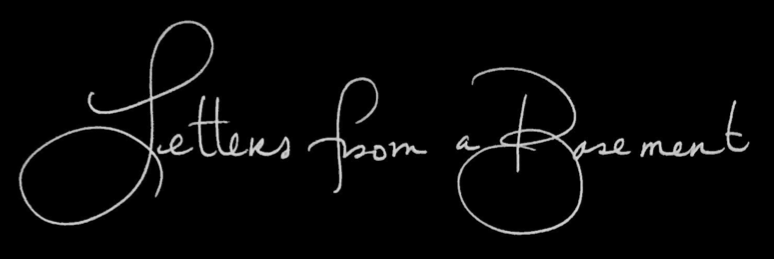 Letters from a Basement